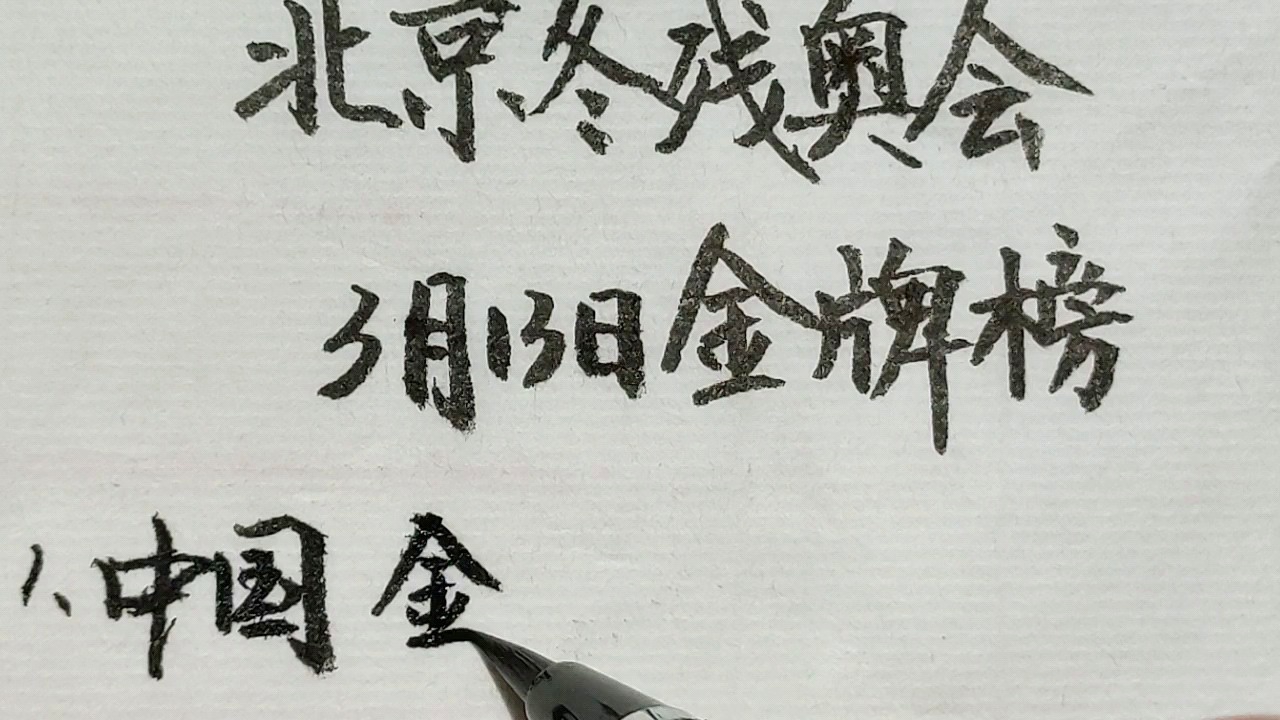 北京冬残奥会
3月13日金牌榜
1、中国 金